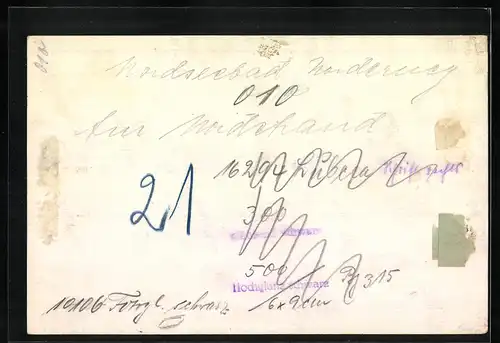 010
Nordseebad Norderney
010
Am Nordstrand
162/94 Lübeca
21
300
500
Hochglanz schwarz
Pg 315
10106 Forgl. schwarz 6x9cm